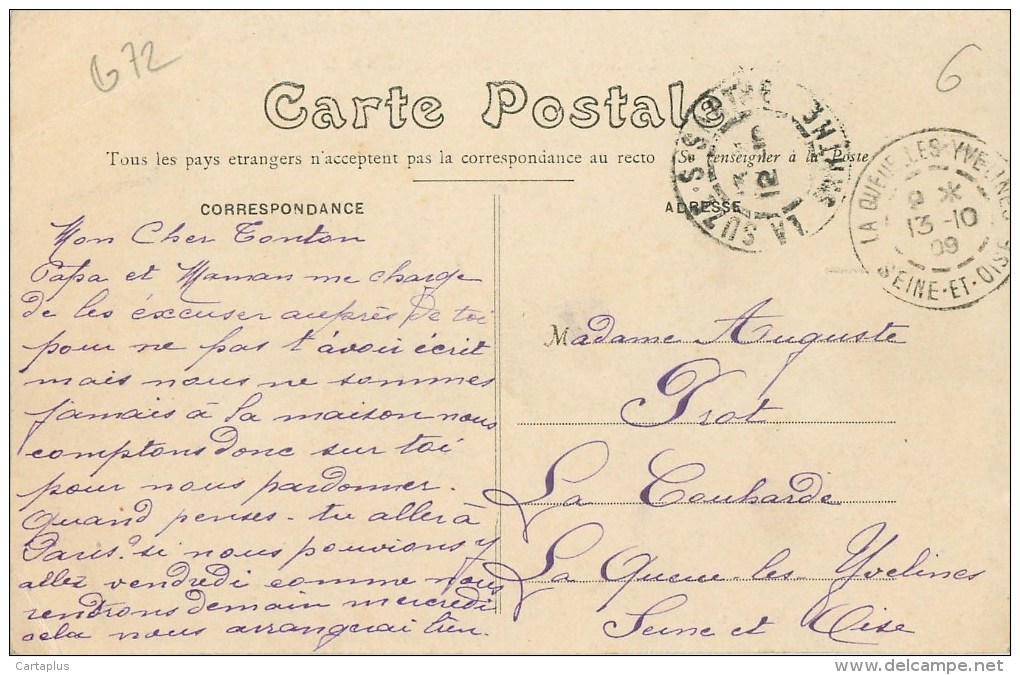 G72
6
Carte Postale
Tous les pays etrangers n'acceptent pas la correspondance au recto Se renseigner à la Poste
CORRESPONDANCE
ADRESSE
LA SUZE-S-SARTHE SARTHE
12
LA QUEUE-LES-YVELINES
13-10
09
SEINE-ET-OISE
Mon Cher Tonton
Papa et Maman me charge
de les éxcuser auprès de toi
pour ne pas t'avoir écrit
mais nous ne sommes
jamais à la maison nous
comptons donc sur toi
pour nous pardonner.
Quand penses-tu aller à
Paris? si nous pouvions y
allez vendredi comme nous
rendrons demain mercredi
cela nous arrangerai bien.
Madame Auguste
Prot
La Couharde
La Queue-les-Yvelines
Seine et Oise
Cartaplus
http://www.delcampe.net